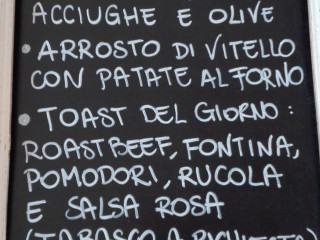 ACCIUGHE E OLIVE
• ARROSTO DI VITELLO
CON PATATE AL FORNO
• TOAST DEL GIORNO:
ROASTBEEF, FONTINA,
POMODORI, RUCOLA
E SALSA ROSA
(TABASCO A RICHIESTA)